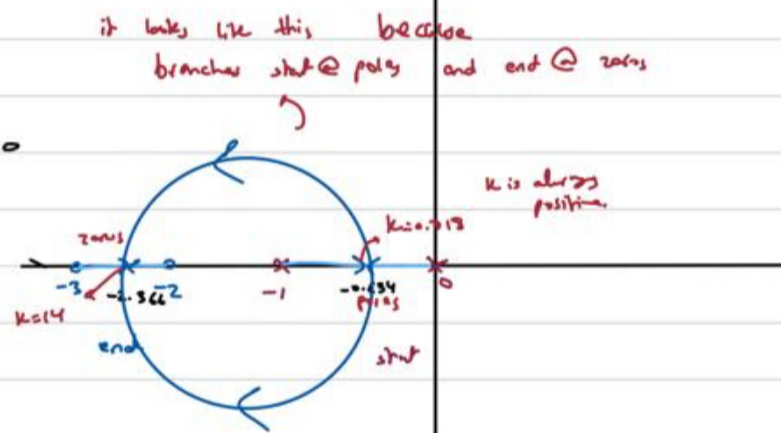 it looks like this because
branches start @ poles and end @ zeros
K is always
positive
zeros
-3
-2.366
-2
-1
-0.634
0
poles
K=14
end
start